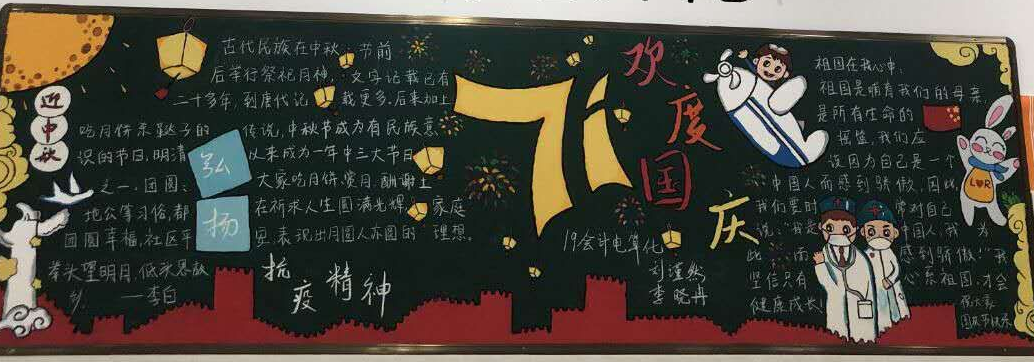 迎中秋
古代民族在中秋节前
后举行祭祀月神,文字记载已有
二十多年,到唐代记载更多,后来加上
吃月饼杀鞑子的传说,中秋节成为有民族意
识的节日,明清以来成为一年中三大节日
之一,团圆、大家吃月饼赏月、酬谢土
地公等习俗,都在祈求人生圆满光辉、家庭
团圆幸福,社区平安,表现出月圆人亦圆的理想。
举头望明月,低头思故
乡。 ——李白
弘扬
抗疫精神
71
欢度国庆
19会计电算化
刘滢然
李晓冉
祖国在我心中,
祖国是哺育我们的母亲
是所有生命的
摇篮,我们应
该因为自己是一个
中国人而感到骄傲,因此
我们要时常对自己
说:“我是中国人,我为
此而感到骄傲!”我
坚信只有心系祖国,才会
健康成长!
祝大家
国庆节快乐
LOR